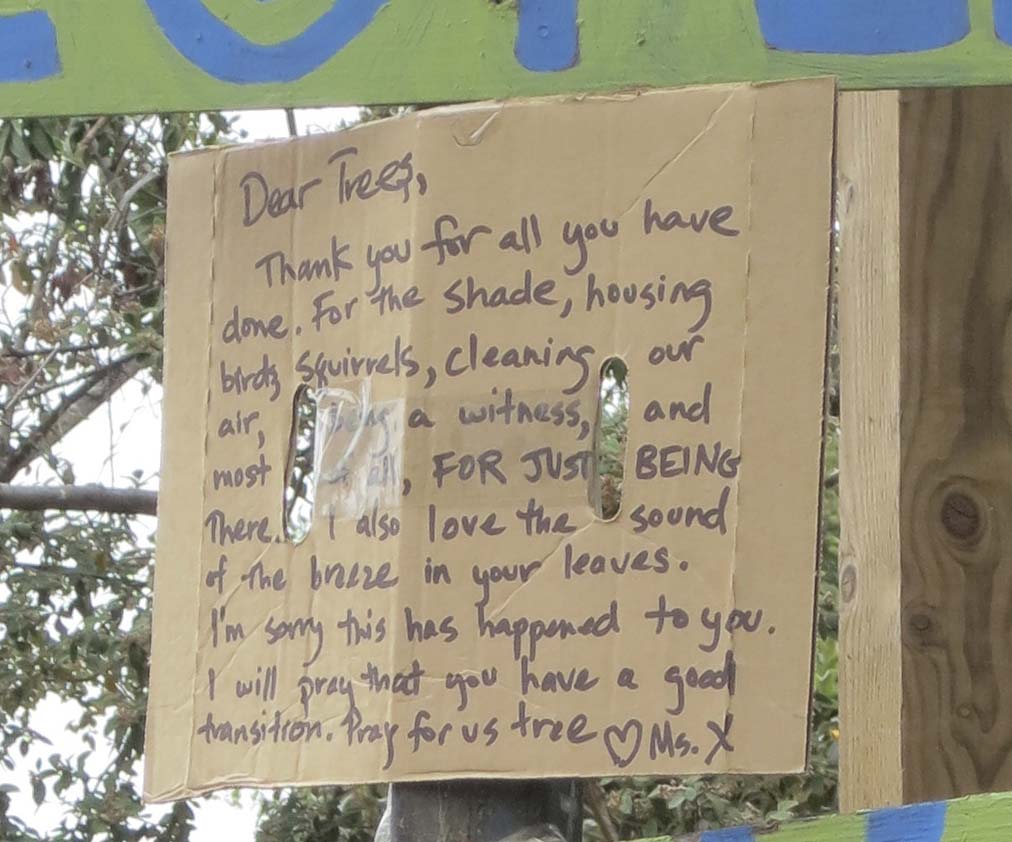 Dear Trees,
Thank you for all you have
done. For the shade, housing
birds, squirrels, cleaning our
air, being a witness, and
most of all, FOR JUST BEING
There. I also love the sound
of the breeze in your leaves.
I'm sorry this has happened to you.
I will pray that you have a good
transition. Pray for us tree ♡ Ms. X